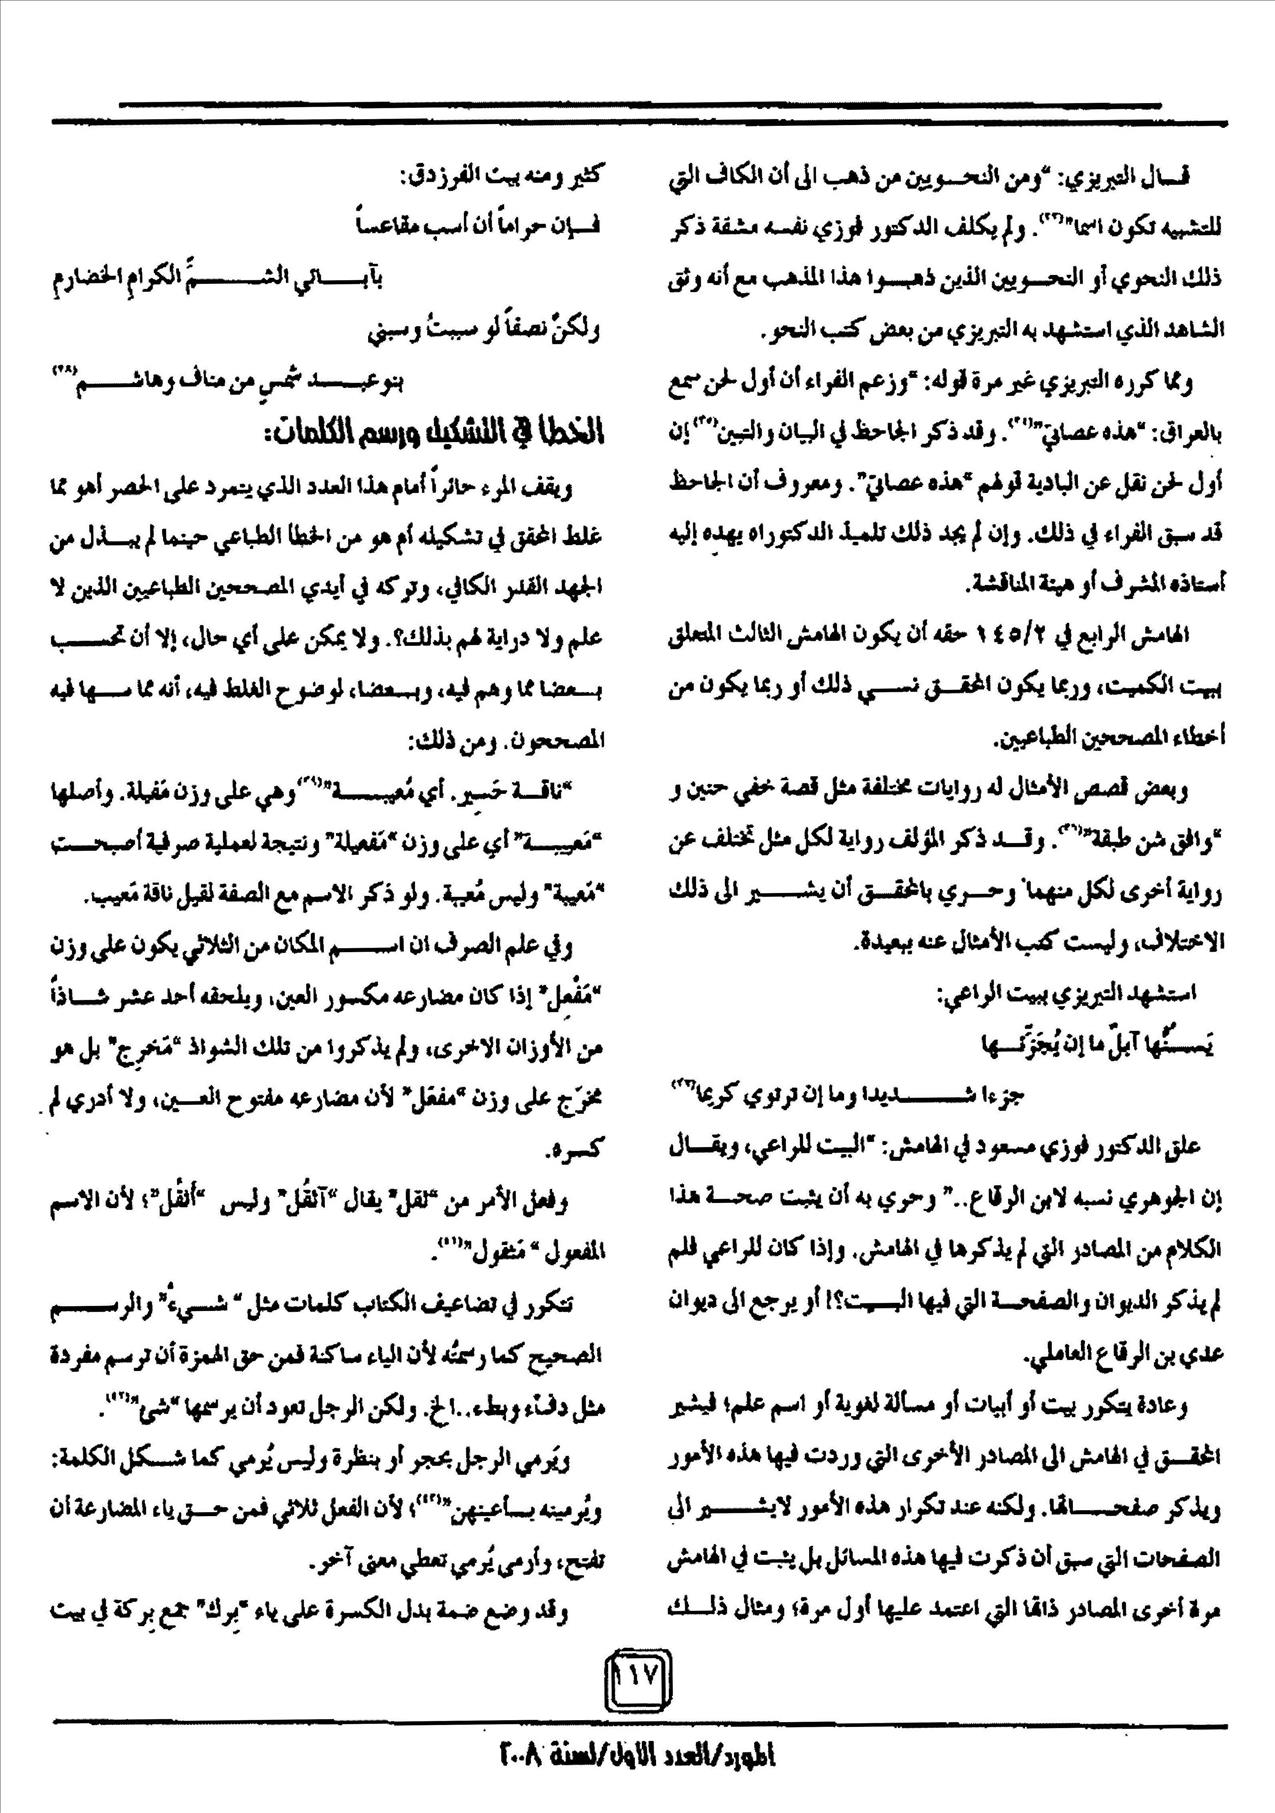 قال التبريزي: "ومن النحويين من ذهب الى أن الكاف التي
للتشبيه تكون اسما"(٣٣). ولم يكلف الدكتور فوزي نفسه مشقة ذكر
ذلك النحوي أو النحويين الذين ذهبوا هذا المذهب مع أنه وثق
الشاهد الذي استشهد به التبريزي من بعض كتب النحو.
ومما كرره التبريزي غير مرة قوله: "وزعم الفراء أن أول لحن سمع
بالعراق: "هذه عصاتي"(٣٤). وقد ذكر الجاحظ في البيان والتبين(٣٥) إن
أول لحن نقل عن البادية قولهم "هذه عصاتي". ومعروف أن الجاحظ
قد سبق الفراء في ذلك. وإن لم يجد ذلك تلميذ الدكتوراه يهده إليه
أستاذه المشرف أو هيئة المناقشة.
الهامش الرابع في ١٤٥/٢ حقه أن يكون الهامش الثالث المتعلق
ببيت الكميت، وربما يكون المحقق نسي ذلك أو ربما يكون من
أخطاء المصححين الطباعيين.
وبعض قصص الأمثال له روايات مختلفة مثل قصة خفي حنين و
"وافق شن طبقة"(٣٦). وقد ذكر المؤلف رواية لكل مثل تختلف عن
رواية أخرى لكل منهما وحري بالمحقق أن يشير الى ذلك
الاختلاف، وليست كتب الأمثال عنه ببعيدة.
استشهد التبريزي ببيت الراعي:
يَسُنُّها آبلٌ ما إن يُجَزِّئها
جزءا شديدا وما إن ترتوي كرِعا(٣٧)
علق الدكتور فوزي مسعود في الهامش: "البيت للراعي، ويقال
إن الجوهري نسبه لابن الرقاع.." وحري به أن يثبت صحة هذا
الكلام من المصادر التي لم يذكرها في الهامش. وإذا كان للراعي فلم
لم يذكر الديوان والصفحة التي فيها البيت؟! أو يرجع الى ديوان
عدي بن الرقاع العاملي.
وعادة يتكرر بيت أو أبيات أو مسألة لغوية أو اسم علم؛ فيشير
المحقق في الهامش الى المصادر الأخرى التي وردت فيها هذه الأمور
ويذكر صفحاتها. ولكنه عند تكرار هذه الأمور لايشير الى
الصفحات التي سبق أن ذكرت فيها هذه المسائل بل يثبت في الهامش
مرة أخرى المصادر ذاتها التي اعتمد عليها أول مرة؛ ومثال ذلك
كثير ومنه بيت الفرزدق:
فإن حراماً أن أسب مقاعساً
بآبائي الشمِّ الكرامِ الخضارمِ
ولكنّ نصفاً لو سببتُ وسبني
بنو عبد شمسٍ من مناف وهاشم(٣٨)
الخطأ في التشكيل ورسم الكلمات:
ويقف المرء حائراً أمام هذا العدد الذي يتمرد على الحصر أهو مما
غلط المحقق في تشكيله أم هو من الخطأ الطباعي حينما لم يبذل من
الجهد القدر الكافي، وتركه في أيدي المصححين الطباعيين الذين لا
علم ولا دراية لهم بذلك؟. ولا يمكن على أي حال، إلا أن تحسب
بعضا مما وهم فيه، وبعضا، لوضوح الغلط فيه، أنه مما سها فيه
المصححون. ومن ذلك:
"ناقة حَسِير. أي مُعيبة"(٣٩) وهي على وزن مَفيلة. وأصلها
"مَعيبة" أي على وزن "مَفعيلة" ونتيجة لعملية صرفية أصبحت
"مَعيبة" وليس مُعيبة. ولو ذكر الاسم مع الصفة لقيل ناقة مَعيب.
وفي علم الصرف ان اسم المكان من الثلاثي يكون على وزن
"مَفْعِل" إذا كان مضارعه مكسور العين، ويلحقه أحد عشر شاذاً
من الأوزان الاخرى، ولم يذكروا من تلك الشواذ "مَخرِج" بل هو
مخرَج على وزن "مفعَل" لأن مضارعه مفتوح العين، ولا أدري لم
كسره.
وفعل الأمر من "ثقل" يقال "آثقُل" وليس "أثقُل"؛ لأن الاسم
المفعول "مَثقول"(٤١).
تتكرر في تضاعيف الكتاب كلمات مثل "شيءٌ" والرسم
الصحيح كما رسمتُه لأن الياء ساكنة فمن حق الهمزة أن ترسم مفردة
مثل دفء وبطء..الخ. ولكن الرجل تعود أن يرسمها "شئ"(٤٢).
ويَرمي الرجل بحجر أو بنظرة وليس يُرمي كما شكل الكلمة:
ويُرمينه بأعينهن"(٤٣)؛ لأن الفعل ثلاثي فمن حق ياء المضارعة أن
تفتح، وأرمى يُرمي تعطي معنى آخر.
وقد وضع ضمة بدل الكسرة على ياء "بِرك" جمع بِركة في بيت
١١٧
المورد/العدد الأول/لسنة ٢٠٠٨